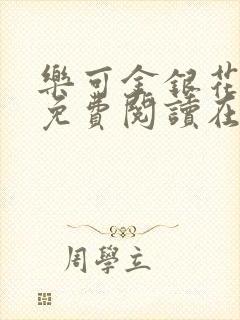 樂可金銀花
免費閱讀在
周學立